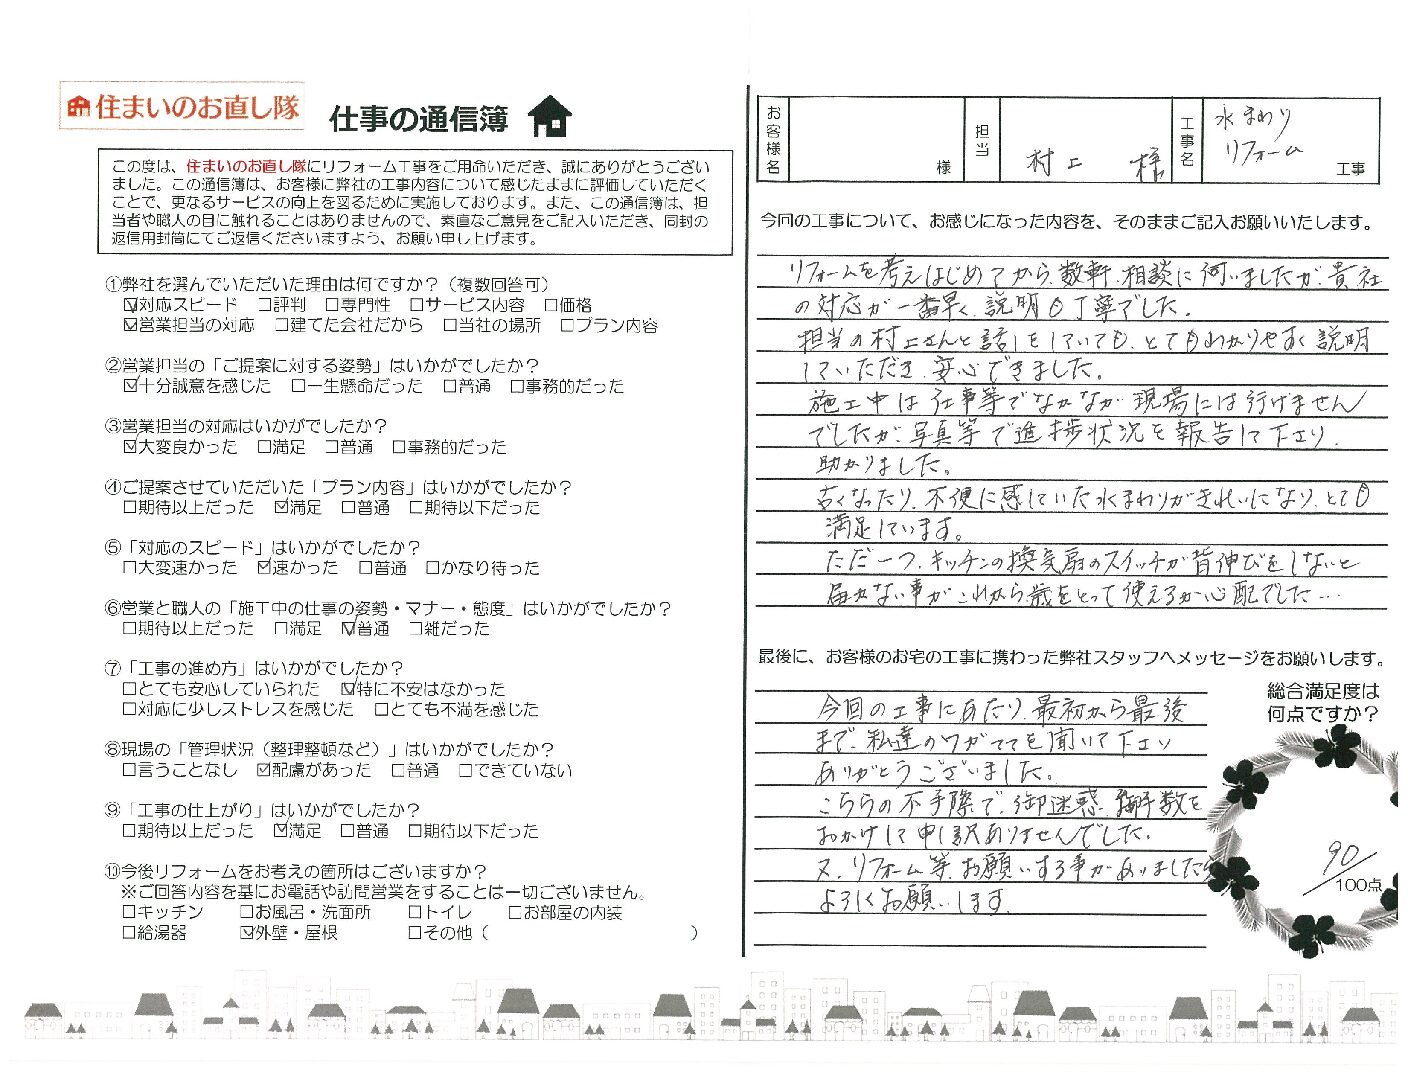 住まいのお直し隊
仕事の通信簿
この度は、住まいのお直し隊にリフォーム工事をご用命いただき、誠にありがとうござい
ました。この通信簿は、お客様に弊社の工事内容について感じたままに評価していただく
ことで、更なるサービスの向上を図るために実施しております。また、この通信簿は、担
当者や職人の目に触れることはありませんので、素直なご意見をご記入いただき、同封の
返信用封筒にてご返信くださいますよう、お願い申し上げます。
①弊社を選んでいただいた理由は何ですか？（複数回答可）
☑対応スピード　□評判　□専門性　□サービス内容　□価格
☑営業担当の対応　□建てた会社だから　□当社の場所　□プラン内容
②営業担当の「ご提案に対する姿勢」はいかがでしたか？
☑十分誠意を感じた　□一生懸命だった　□普通　□事務的だった
③営業担当の対応はいかがでしたか？
☑大変良かった　□満足　□普通　□事務的だった
④ご提案させていただいた「プラン内容」はいかがでしたか？
□期待以上だった　☑満足　□普通　□期待以下だった
⑤「対応のスピード」はいかがでしたか？
□大変速かった　☑速かった　□普通　□かなり待った
⑥営業と職人の「施工中の仕事の姿勢・マナー・態度」はいかがでしたか？
□期待以上だった　□満足　☑普通　□雑だった
⑦「工事の進め方」はいかがでしたか？
□とても安心していられた　☑特に不安はなかった
□対応に少しストレスを感じた　□とても不満を感じた
⑧現場の「管理状況（整理整頓など）」はいかがでしたか？
□言うことなし　☑配慮があった　□普通　□できていない
⑨「工事の仕上がり」はいかがでしたか？
□期待以上だった　☑満足　□普通　□期待以下だった
⑩今後リフォームをお考えの箇所はございますか？
※ご回答内容を基にお電話や訪問営業をすることは一切ございません。
□キッチン　□お風呂・洗面所　□トイレ　□お部屋の内装
□給湯器　☑外壁・屋根　□その他（　　　）
お客様名　様　担当　村上　様　工事名　水まわりリフォーム　工事
今回の工事について、お感じになった内容を、そのままご記入お願いいたします。
リフォームを考えはじめてから数軒、相談に伺いましたが、貴社
の対応が一番早く、説明も丁寧でした。
担当の村上さんと話しをしていても、とてもわかりやすく説明
していただき、安心できました。
施工中は仕事等でなかなか現場には行けません
でしたが、写真等で進捗状況を報告して下さり、
助かりました。
古くなったり、不便に感じていた水まわりがきれいになり、とても
満足しています。
ただ一つ、キッチンの換気扇のスイッチが背伸びをしないと
届かない事がこれから歳をとって使えるか心配でした…
最後に、お客様のお宅の工事に携わった弊社スタッフへメッセージをお願いします。
今回の工事にあたり、最初から最後
まで、私達のワガママを聞いて下さり
ありがとうございました。
こちらの不手際で、御迷惑、御手数を
おかけして申し訳ありませんでした。
又、リフォーム等、お願いする事がありましたら
よろしくお願いします。
総合満足度は
何点ですか？
90/100点